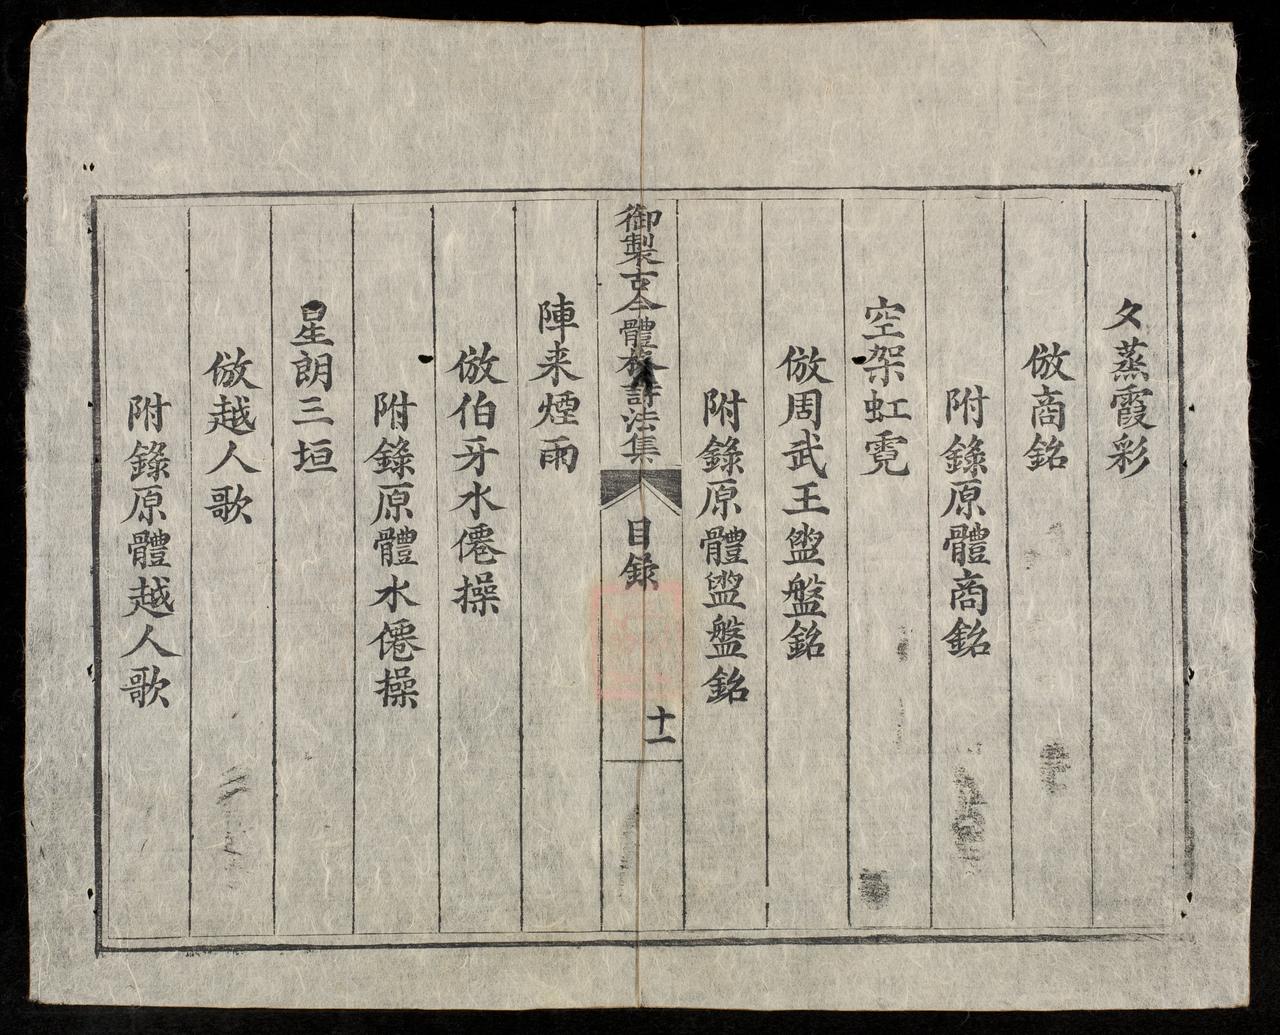 夂蒸霞彩
倣商銘
附錄原體商銘
空架虹霓
倣周武王盥盤銘
附錄原體盥盤銘
御製古今體格詩法集
目錄
十一
陣来煙雨
倣伯牙水僊操
附錄原體水僊操
星朗三垣
倣越人歌
附錄原體越人歌